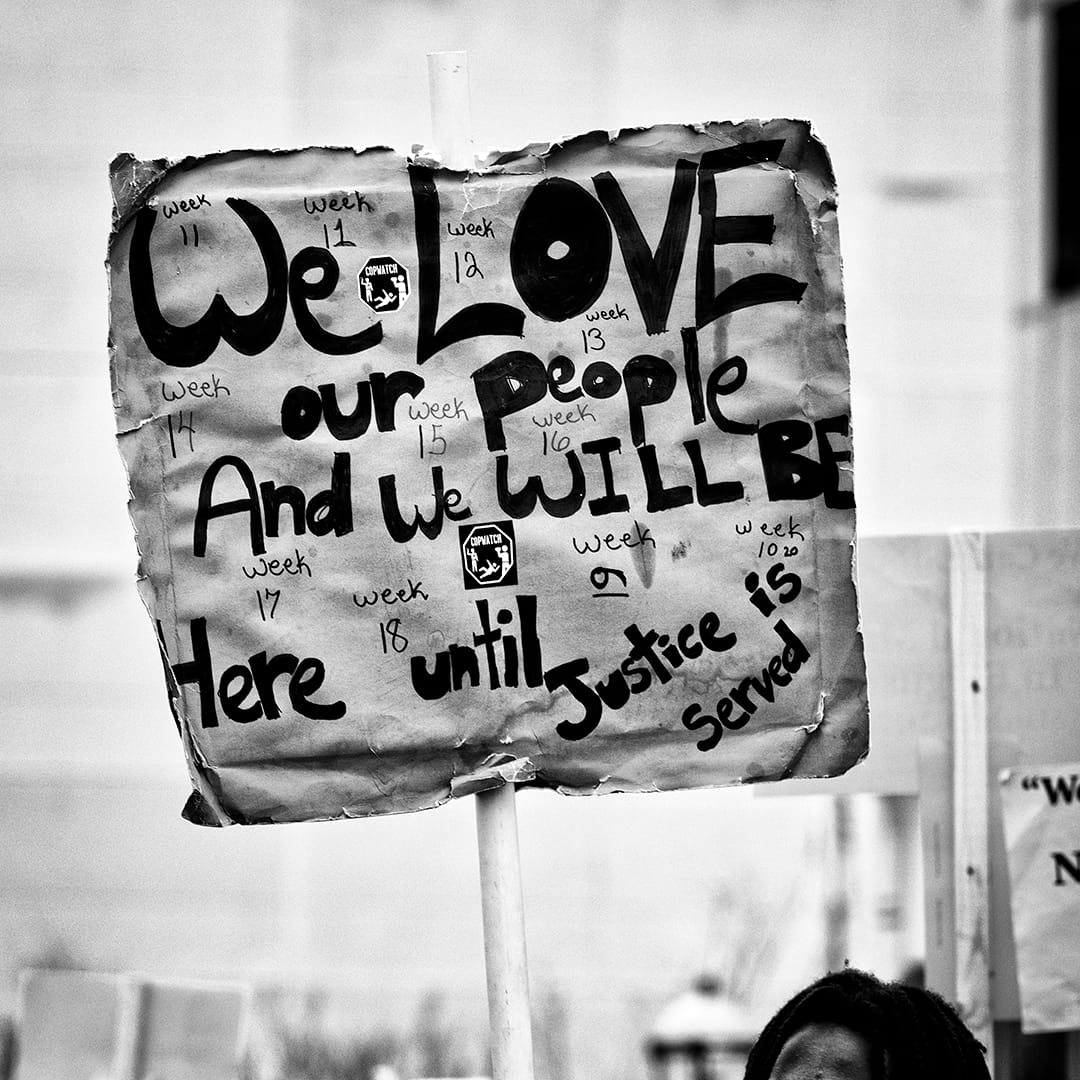 We LOVE
our people
And We WILL BE
Here until Justice is
Served
week
11
week
11
week
12
week
13
week
14
week
15
week
16
week
17
week
18
week
9
week
10 20
COPWATCH
COPWATCH
"We
N